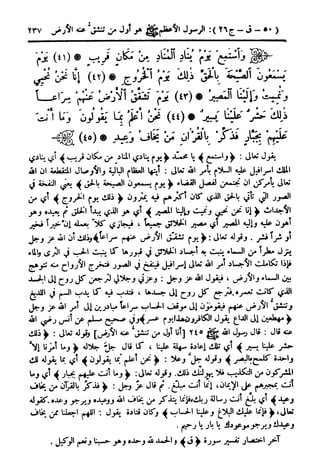 (٥٠ - ق - ج٢٦) : الرسول الأعظم ﷺ هو أول من تنشق عنه الأرض ٢٣٧
﴿ وَاسْتَمِعْ يَوْمَ يُنَادِ الْمُنَادِ مِنْ مَكَانٍ قَرِيبٍ * (٤١) يَوْمَ
يَسْمَعُونَ الصَّيْحَةَ بِالْحَقِّ ذَلِكَ يَوْمُ الْخُرُوجِ * (٤٢) إِنَّا نَحْنُ نُحْيِي
وَنُمِيتُ وَإِلَيْنَا الْمَصِيرُ * (٤٣) يَوْمَ تَشَقَّقُ الْأَرْضُ عَنْهُمْ سِرَاعًا
ذَلِكَ حَشْرٌ عَلَيْنَا يَسِيرٌ * (٤٤) نَحْنُ أَعْلَمُ بِمَا يَقُولُونَ وَمَا أَنْتَ
عَلَيْهِمْ بِجَبَّارٍ فَذَكِّرْ بِالْقُرْآنِ مَنْ يَخَافُ وَعِيدِ * (٤٥) ﴾
يقول تعالى : ﴿ واستمع ﴾ يا محمد ﴿ يوم ينادي المناد من مكان قريب ﴾ أي ينادي
الملك اسرافيل عليه السلام بأمر الله تعالى : أيتها العظام البالية والأوصال المتقطعة ان الله
تعالى يأمركن ان تجتمعن لفصل القضاء ﴿ يوم يسمعون الصيحة بالحق ﴾ يعني النفخة في
الصور التي تأتي بالحق الذي كان أكثرهم فيه يمترون ﴿ ذلك يوم الخروج ﴾ أي من
الأجداث ﴿ إنا نحن نحيي ونميت وإلينا المصير ﴾ أي هو الذي يبدأ الخلق ثم يعيده وهو
أهون عليه وإليه المصير أي مصير الخلائق جميعاً ، فيجازي كلاً بعمله إن خيراً فخير
أو شراً فشر . وقوله تعالى : ﴿ يوم تشقق الأرض عنهم سراعاً ﴾ وذلك أن الله عز وجل
ينزل مطراً من السماء ينبت به أجساد الخلائق في قبورها كما ينبت الحب في الثرى بالماء
فإذا تكاملت الأجساد أمر الله تعالى إسرافيل فينفخ في الصور فتخرج الأرواح منه تتوهج
بين السماء والأرض ، فيقول الله عز وجل : وعزتي وجلالي لترجعن كل روح إلى الجسد
الذي كانت تعمره فترجع كل روح إلى جسدها ، فتدب فيه كما يدب السم في اللديغ
وتنشق الأرض عنهم فيقومون إلى موقف الحساب سراعاً مبادرين إلى أمر الله عز وجل
﴿ مهطعين إلى الداع يقول الكافرون هذا يوم عسر ﴾ وفي صحيح مسلم عن أنس رضي الله
عنه قال : قال رسول الله ﷺ ٢٤٥ [أنا أول من تنشق عنه الأرض] وقوله تعالى : ﴿ ذلك
حشر علينا يسير ﴾ أي تلك إعادة سهلة علينا ، كما قال جل جلاله ﴿ وما أمرنا إلا
واحدة كلمح بالبصر ﴾ وقوله جل وعلا : ﴿ نحن أعلم بما يقولون ﴾ أي بما يقوله لك
المشركون من التكذيب فلا يهولنك ذلك. وقوله تعالى: ﴿ وما أنت عليهم بجبار ﴾ أي وما
أنت بمجبرهم على الإيمان، إنما أنت مبلغ. ثم قال عز وجل : ﴿ فذكر بالقرآن من يخاف
وعيد ﴾ أي بلغ أنت رسالة ربك فإنما يتذكر من يخاف الله ووعيده ويرجو وعده. كقوله
تعالى، ﴿ فإنما عليك البلاغ وعلينا الحساب ﴾ وكان قتادة يقول : اللهم اجعلنا ممن يخاف
وعيدك ويرجو موعودك يا بار يا رحيم .
آخر اختصار تفسير سورة ﴿ ق ﴾ والحمد لله وحده وهو حسبنا ونعم الوكيل .